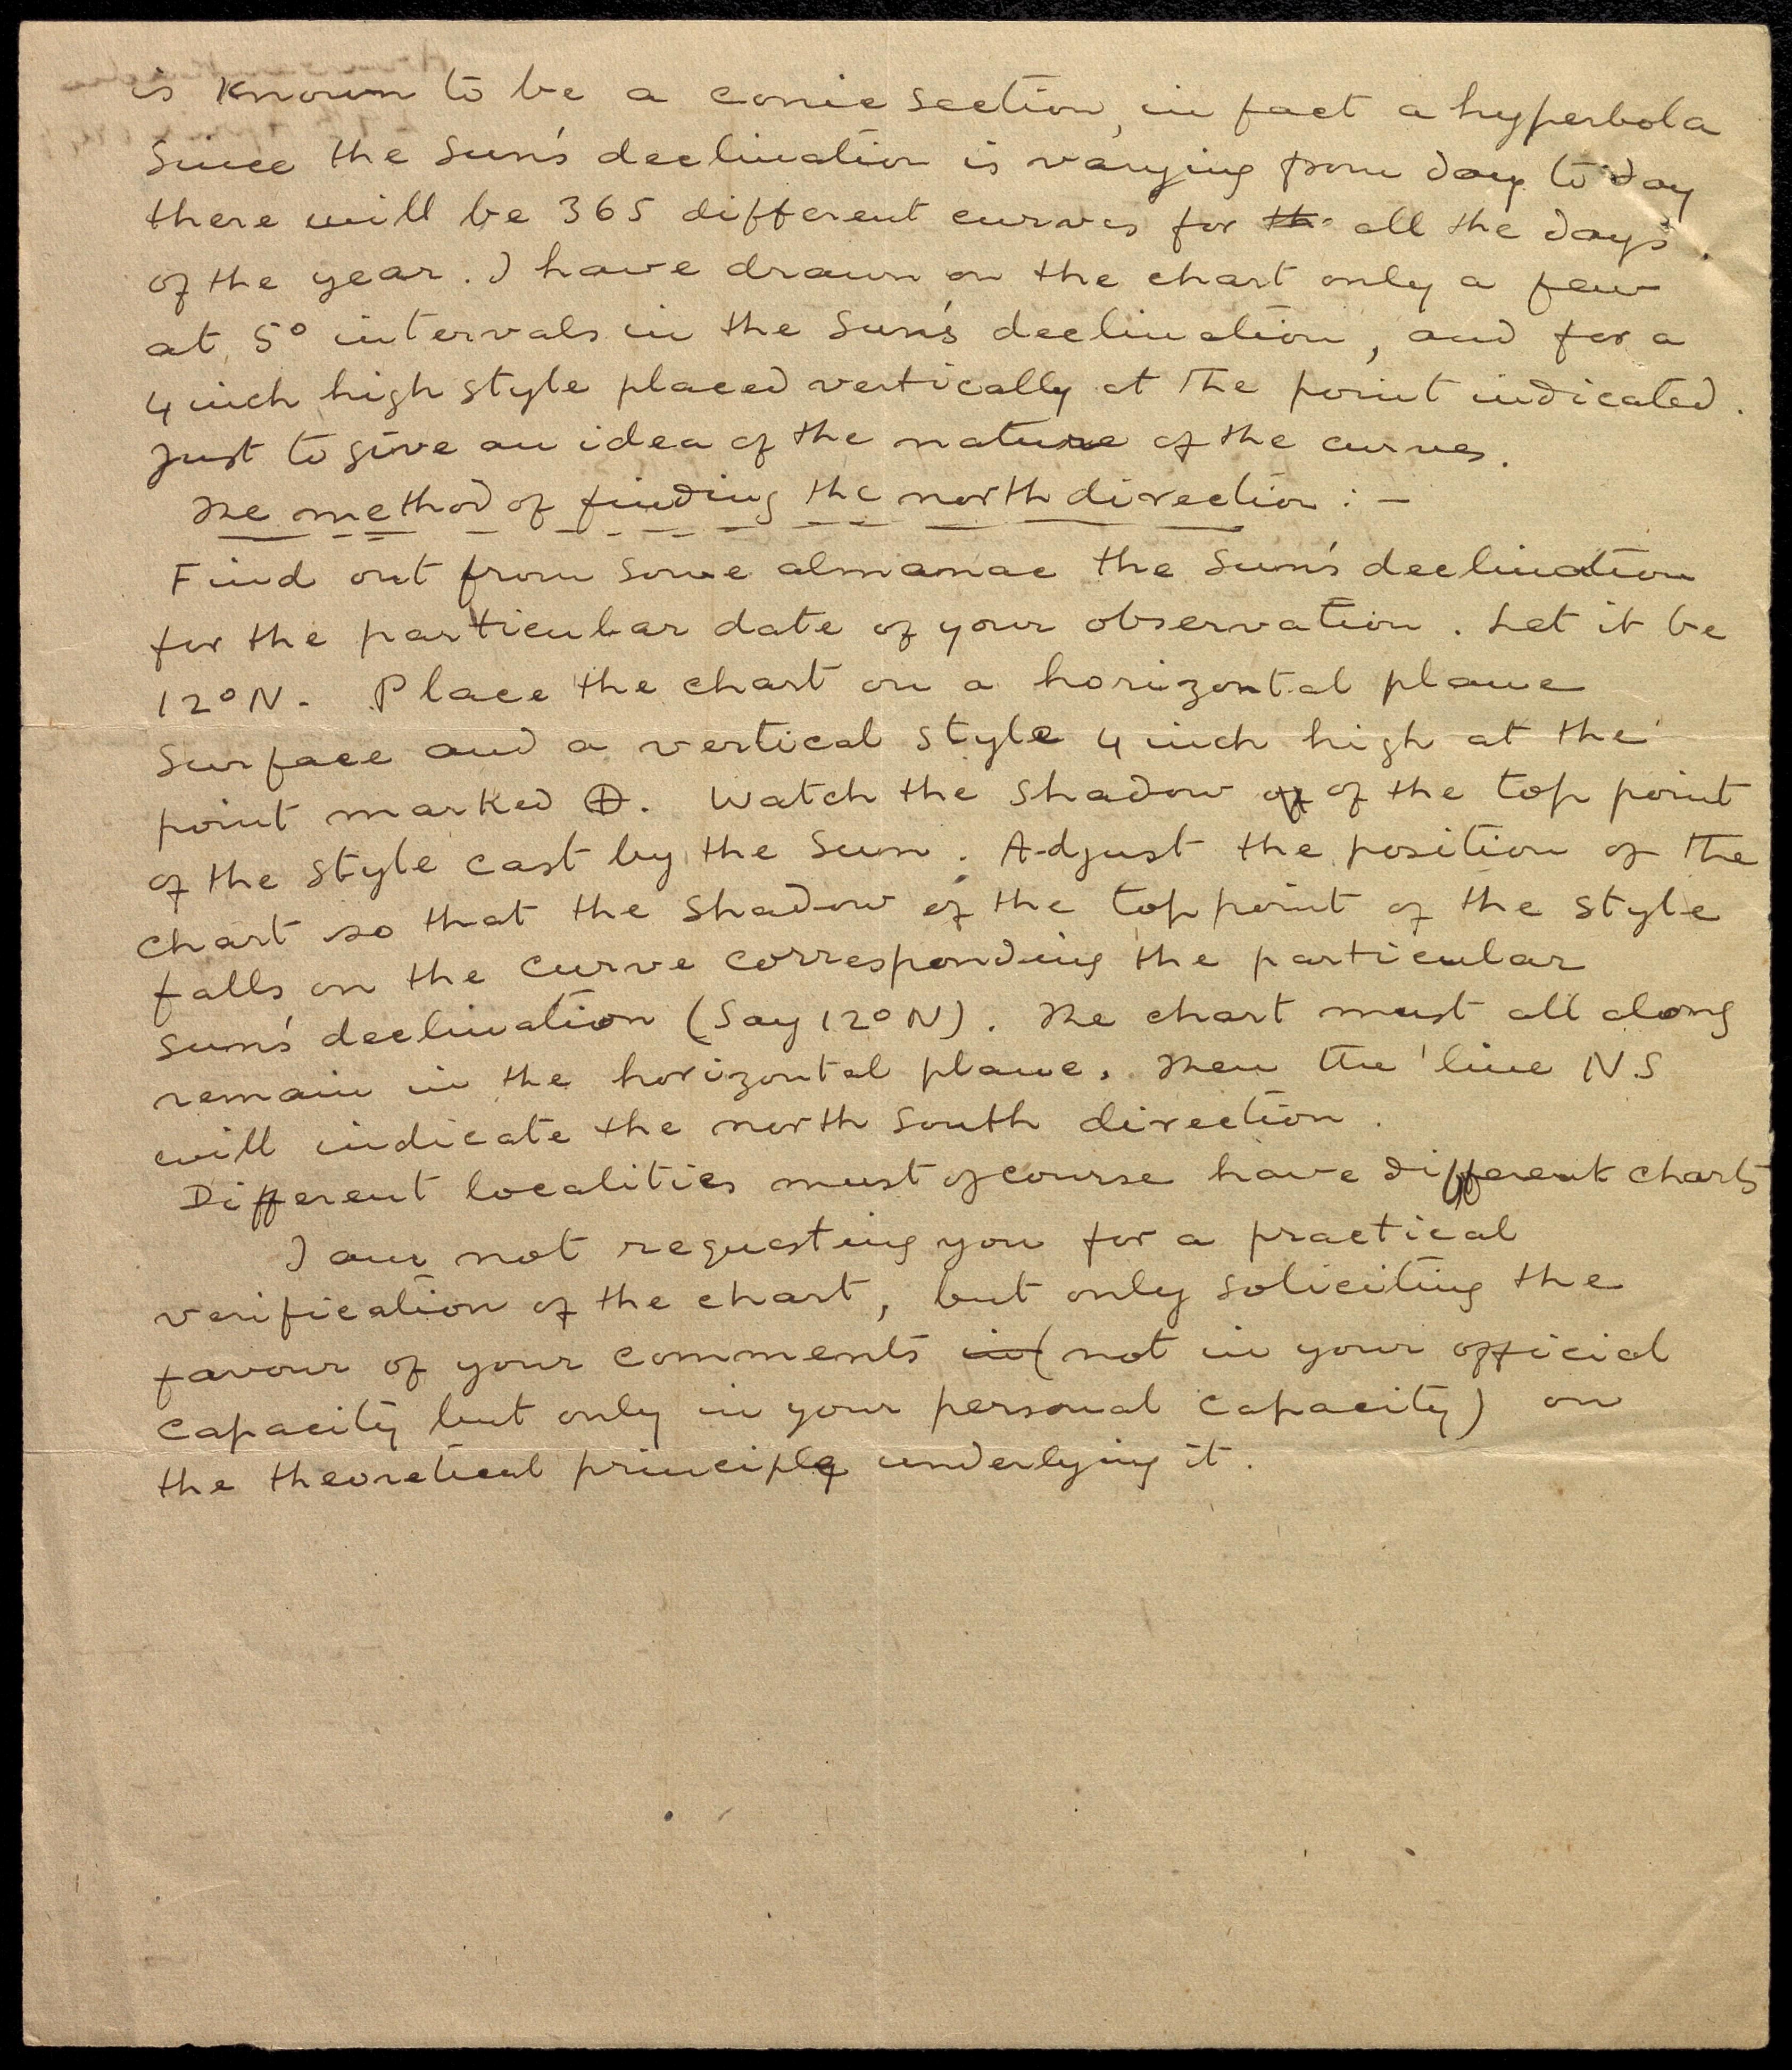 is known to be a conic section, in fact a hyperbola
Since the Sun's declination is varying from day to day
there will be 365 different curves for th all the days
of the year. I have drawn on the chart only a few
at 5° intervals in the Sun's declination, and for a
4 inch high style placed vertically at the point indicated.
Just to give an idea of the nature of the curves.
The method of finding the north direction : -
Find out from some almanac the Sun's declination
for the particular date of your observation. Let it be
12°N. Place the chart on a horizontal plane
surface and a vertical style 4 inch high at the
point marked ⊕. Watch the shadow of of the top point
of the style cast by the Sun. Adjust the position of the
chart so that the shadow of the top point of the style
falls on the curve corresponding the particular
Sun's declination (Say 12°N). The chart must all along
remain in the horizontal plane. Then the line NS
will indicate the north south direction.
Different localities must ofcourse have different charts
I am not requesting you for a practical
verification of the chart, but only soliciting the
favour of your comments in (not in your official
capacity but only in your personal capacity) on
the theoretical principle underlying it.